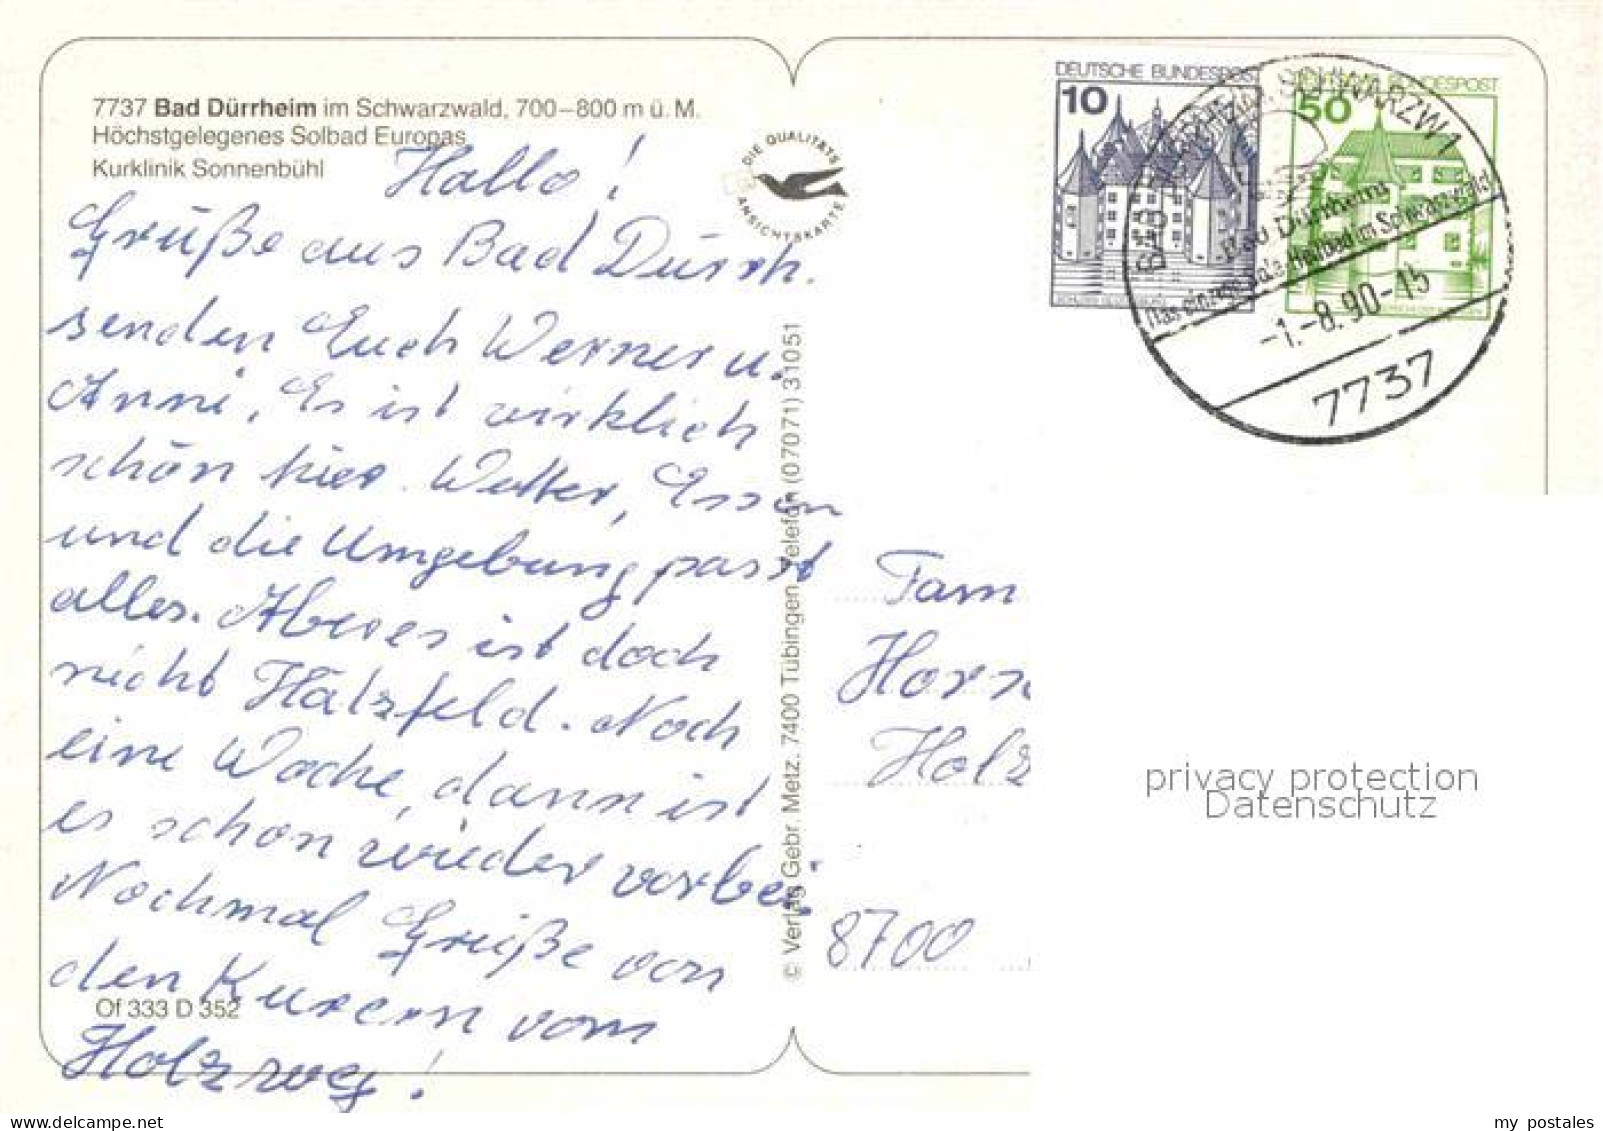 7737 Bad Dürrheim im Schwarzwald, 700–800 m ü. M.
Höchstgelegenes Solbad Europas
Kurklinik Sonnenbühl
Hallo!
Grüße aus Bad Dürrh.
senden Euch Werner u.
Anni. Es ist wirklich
schön hier. Wetter, Essen
und die Umgebung passt
alles. Aber es ist doch
nicht Hatzfeld. Noch
eine Woche, dann ist
es schon wieder vorbei
Nochmal Grüße von
den Kurern vom
Holzweg!
Of 333 D 352
DIE QUALITÄTS
ANSICHTSKARTE
© Verlag Gebr. Metz, 7400 Tübingen, Telefon (07071) 31051
DEUTSCHE BUNDESPOST
10
DEUTSCHE BUNDESPOST
50
SCHWARZW 1
Bad Dürrheim
Das einzige Sole-Heilbad im Schwarzwald
-1.-8.90-15
7737
Fam
Horn
Holz
8700
privacy protection
Datenschutz
my postales